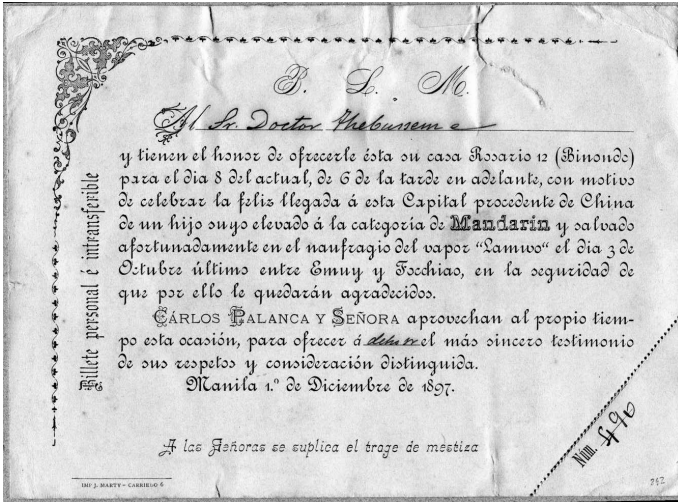 B. L. M.
Al Sr. Doctor Thebussem
y tienen el honor de ofrecerle ésta su casa Rosario 12 (Binondo)
para el dia 8 del actual, de 6 de la tarde en adelante, con motivo
de celebrar la feliz llegada á esta Capital procedente de China
de un hijo suyo elevado á la categoría de Mandarín y salvado
afortunadamente en el naufragio del vapor "Lamwo" el dia 3 de
Octubre último entre Emuy y Focchias, en la seguridad de
que por ello le quedarán agradecidos.
CÁRLOS PALANCA Y SEÑORA aprovechan al propio tiem-
po esta ocasión, para ofrecer á el más sincero testimonio
de sus respetos y consideración distinguida.
Manila 1.º de Diciembre de 1897.
A las Señoras se suplica el trage de mestiza
Billete personal é intransferible
Núm. 490
IMP J. MARTY - CARRIEDO 6
292